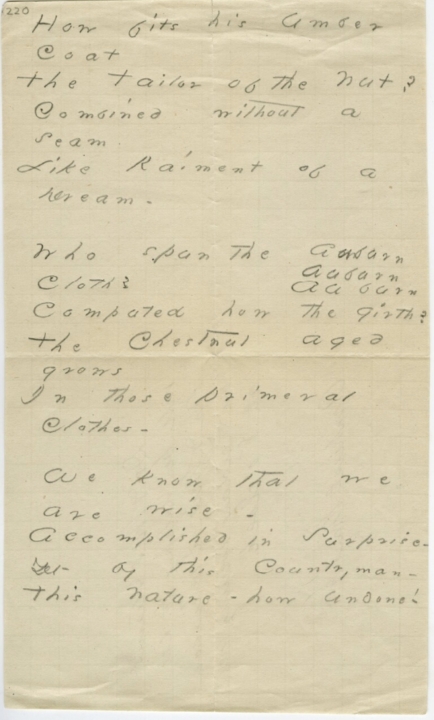 220
How fits his Umber
Coat
The Tailor of the Nut?
Combined without a
seam
Like Raiment of a
Dream -
Who spun the Auburn
Auburn
Cloth?
Auburn
Computed how the Girth?
The Chestnut aged
grows
In those primeval
Clothes -
We know that we
are wise -
Accomplished in Surprise -
by this Countryman -
This nature - how undone!